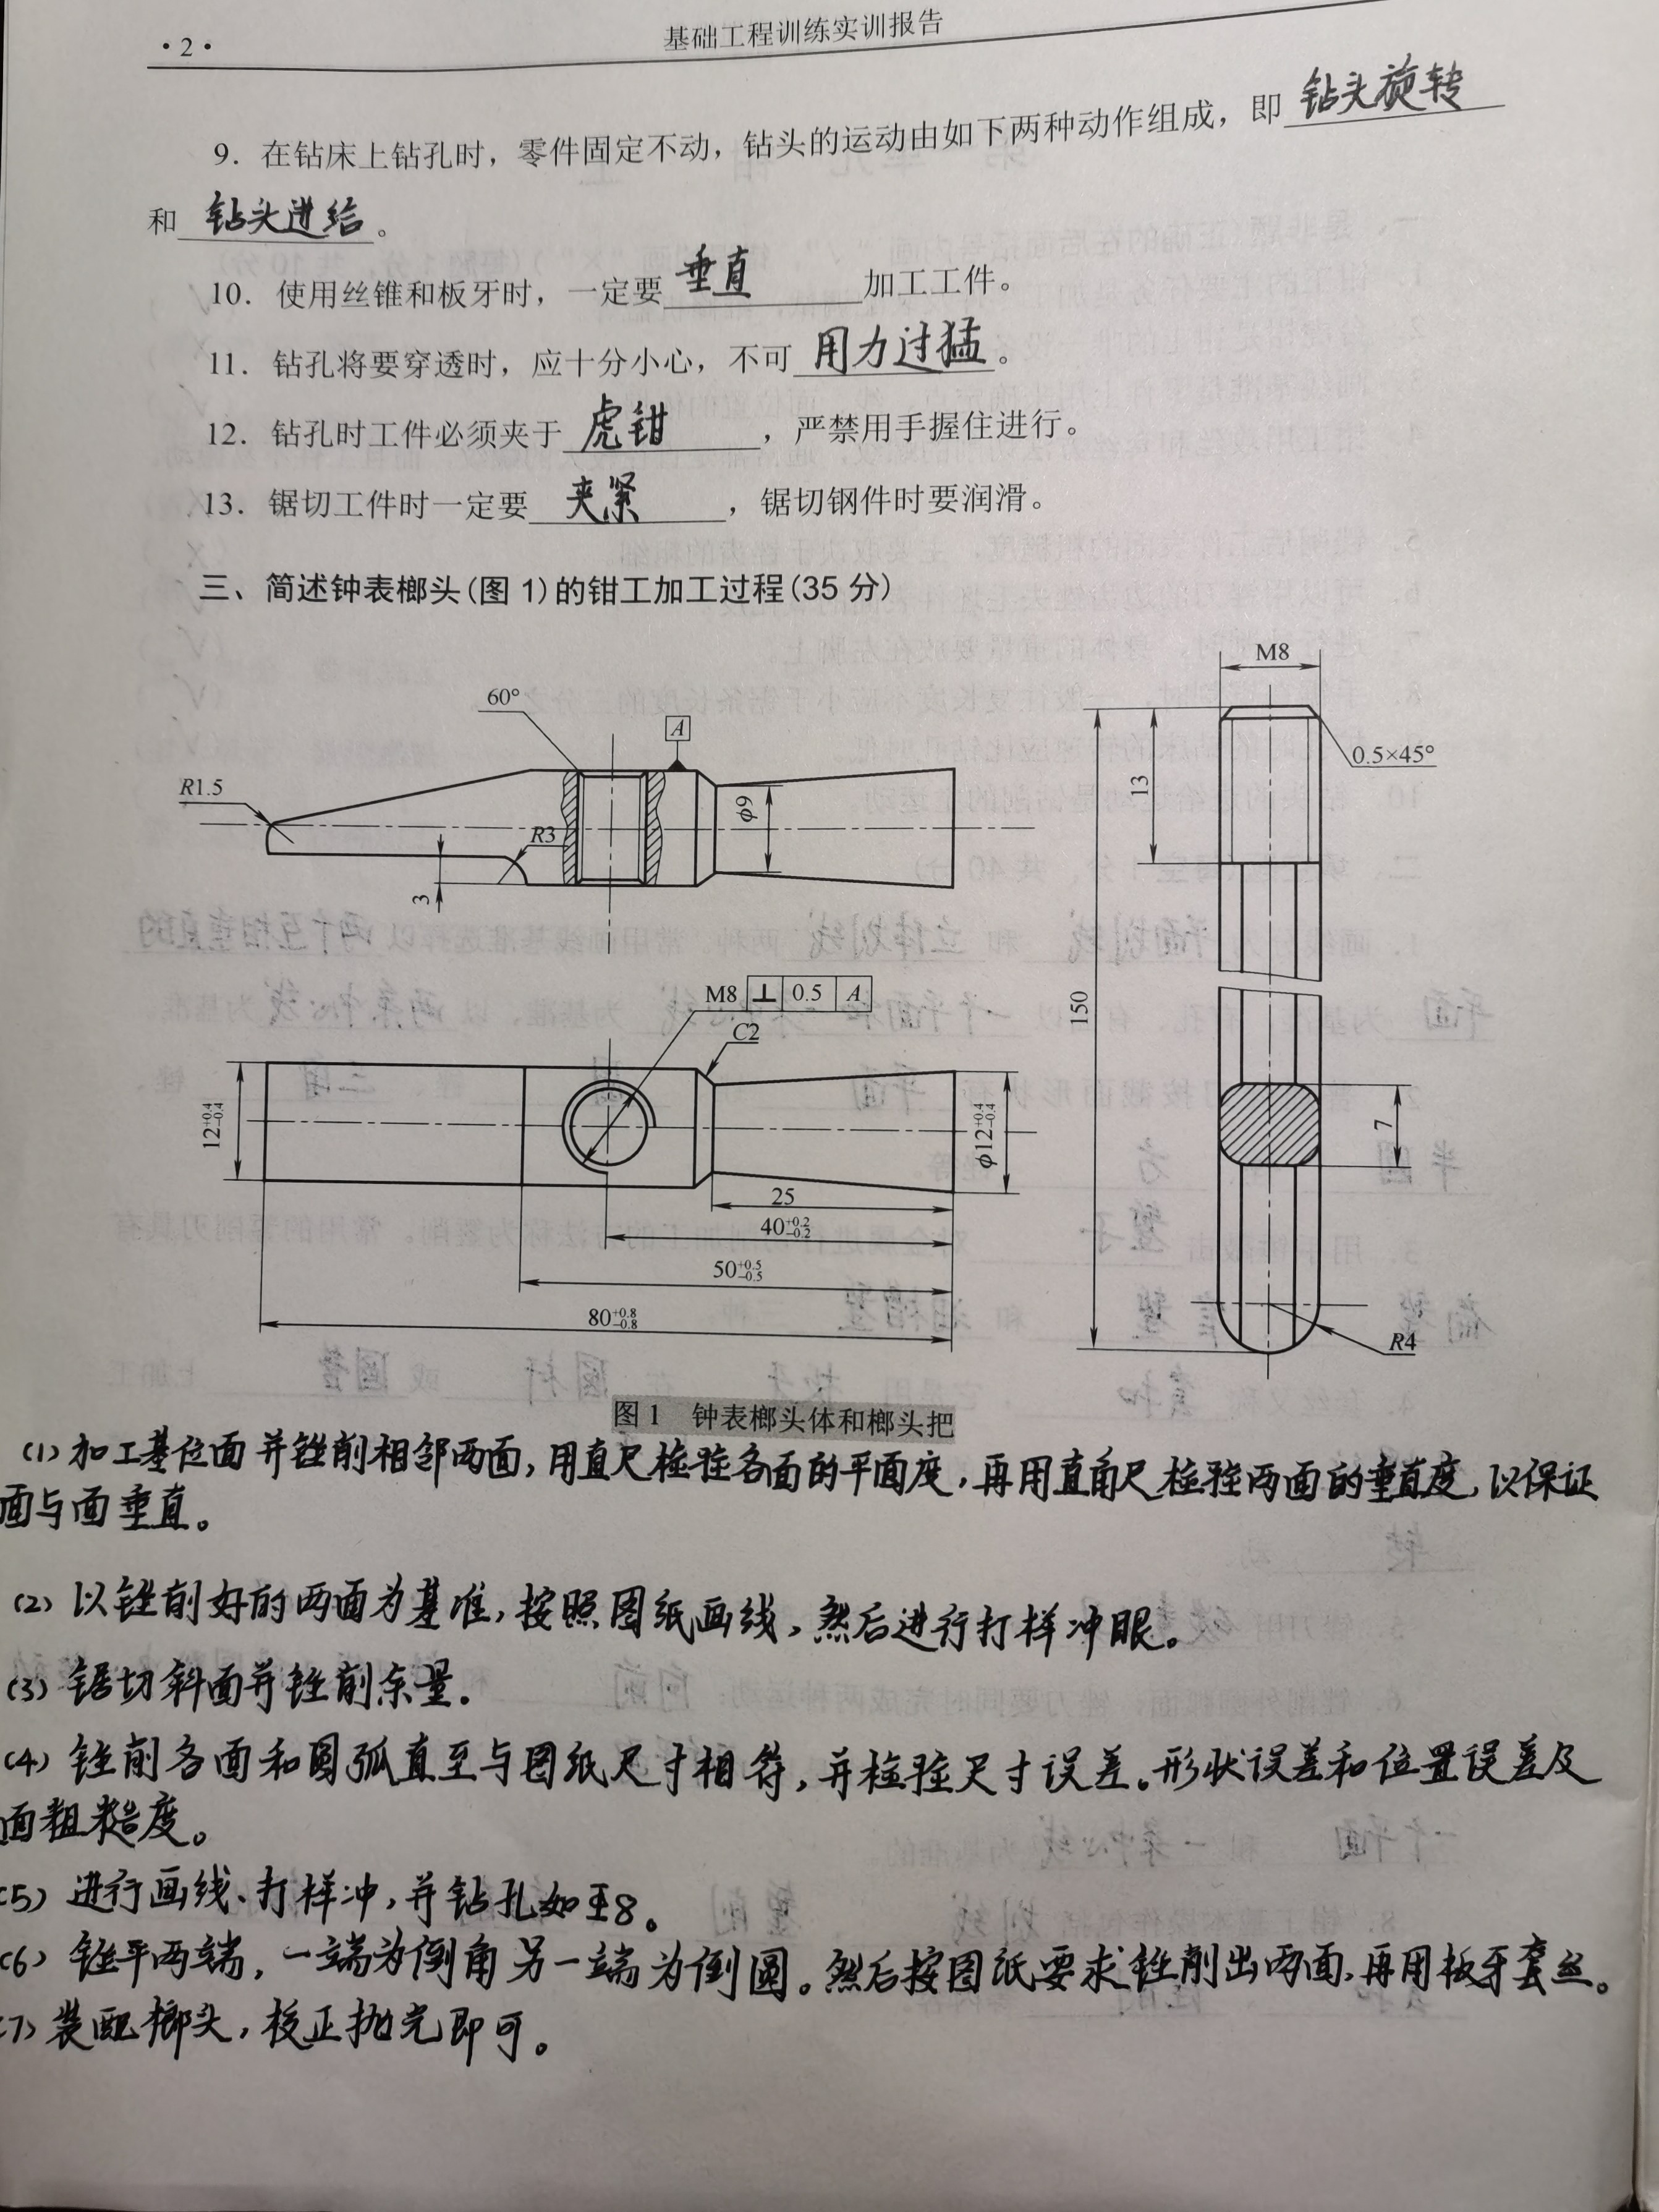 · 2 ·
基础工程训练实训报告
9. 在钻床上钻孔时，零件固定不动，钻头的运动由如下两种动作组成，即 钻头旋转
和 钻头进给 。
10. 使用丝锥和板牙时，一定要 垂直 加工工件。
11. 钻孔将要穿透时，应十分小心，不可 用力过猛 。
12. 钻孔时工件必须夹于 虎钳 ，严禁用手握住进行。
13. 锯切工件时一定要 夹紧 ，锯切钢件时要润滑。
三、简述钟表榔头(图 1)的钳工加工过程(35 分)
M8
60°
A
0.5×45°
R1.5
13
φ9
R3
3
M8 ⊥ 0.5 A
150
C2
12+0.4-0.4
φ12+0.4-0.4
7
25
40+0.2-0.2
50+0.5-0.5
80+0.8-0.8
R4
图 1 钟表榔头体和榔头把
(1) 加工基位面并锉削相邻两面，用直尺检验各面的平面度，再用直角尺检验两面的垂直度，以保证
面与面垂直。
(2) 以锉削好的两面为基准，按照图纸画线，然后进行打样冲眼。
(3) 锯切斜面并锉削余量。
(4) 锉削各面和圆弧直至与图纸尺寸相符，并检验尺寸误差。形状误差和位置误差及
面粗糙度。
(5) 进行画线、打样冲，并钻孔如王8。
(6) 锉平两端，一端为倒角另一端为倒圆。然后按图纸要求锉削出两面，再用板牙套丝。
(7) 装配榔头，校正抛光即可。